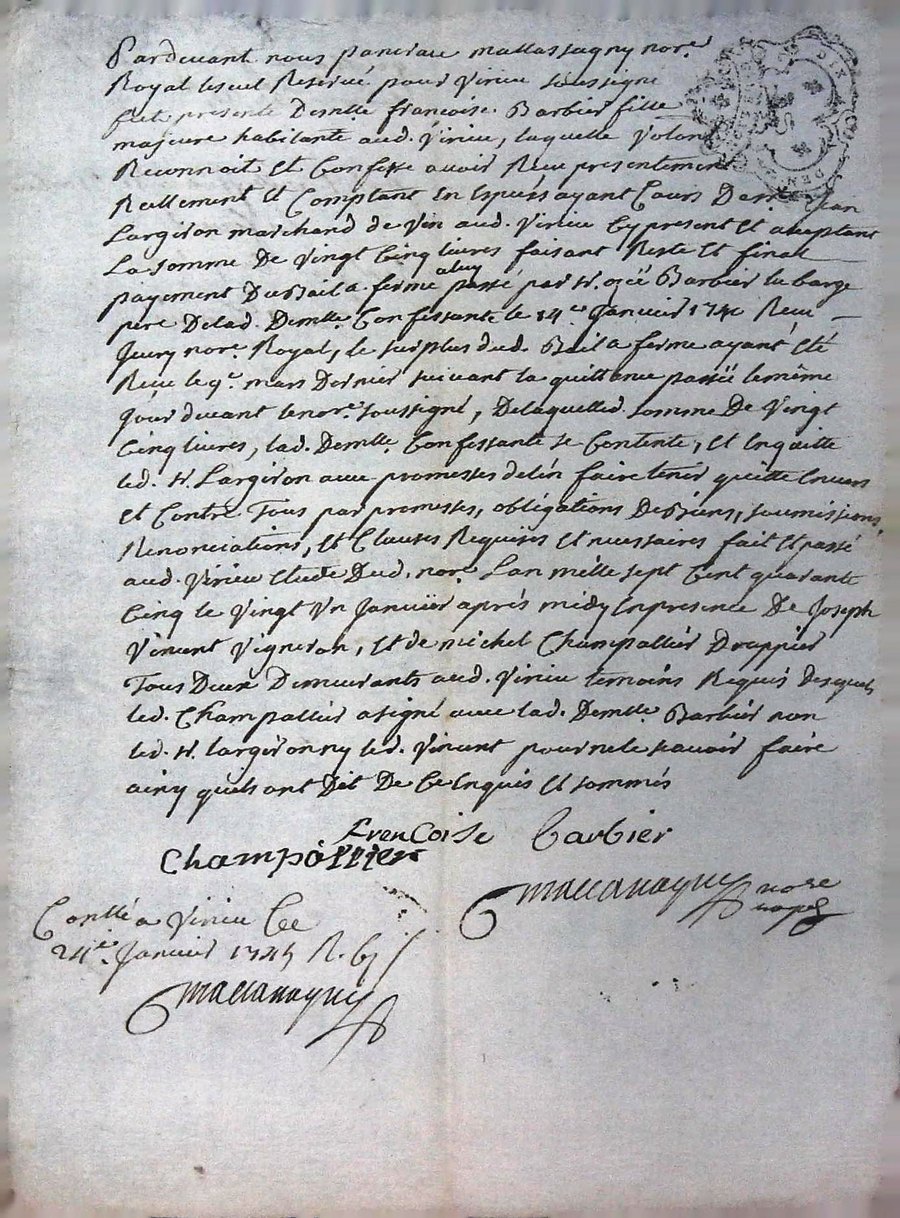 Pardevant nous pancrace mallassagny nore.
Royal Reservé pour Virieu soussigné
fut presente Demlle. françoise Barbier fille
majeure habitante aud. Virieu, laquelle Volont
Reconnoit Et Confesse avoir Reçu presentement
Reellement Et Comptant En Especes ayant Cours De Jean
Largiron marchand de Vin aud. Virieu Cy present Et aceptant
La somme De Vingt Cinq livres faisant Reste Et final
payement Du Bail a ferme a luy passé par sr. ozée Barbier la barge
pere De lad. Demlle. Confessante le 14e. Janvier 1740 Reçu
Juvry nore. Royal, le surplus dud. Bail a ferme ayant Eté
Reçu le 9e. mars Dernier suivant la quittance passée le même
Jour devant le nore. soussigné, De laquelle d. somme De Vingt
Cinq livres, lad. Demlle. Confessante se Contente, Et En quitte
led. sr. Largiron avec promesses de l'en faire tenir quitte Envers
Et Contre Tous par promesses, obligations De Biens, soumissions,
Renonciations, Et Clauses Requises Et necessaires fait Et passé
aud. Virieu Etude Dud. nore. L'an mille sept Cent quarante
Cinq le Vingt Un Janvier aprés midy En presence De Joseph
Vincent Vigneron, Et de michel Champallier Drappier
Tous Deux Demeurants aud. Virieu temoins Requis desquels
led. Champallier a signé avec lad. Demlle. Barbier non
led. sr. largiron ny led. Vincent pour ne le sçavoir faire
ainsy qu'ils ont Dit De Ce Enquis Et sommés
francoise barbier
Champallier
nore
Conllé a Virieu Ce
24e. Janvier 1745 R.